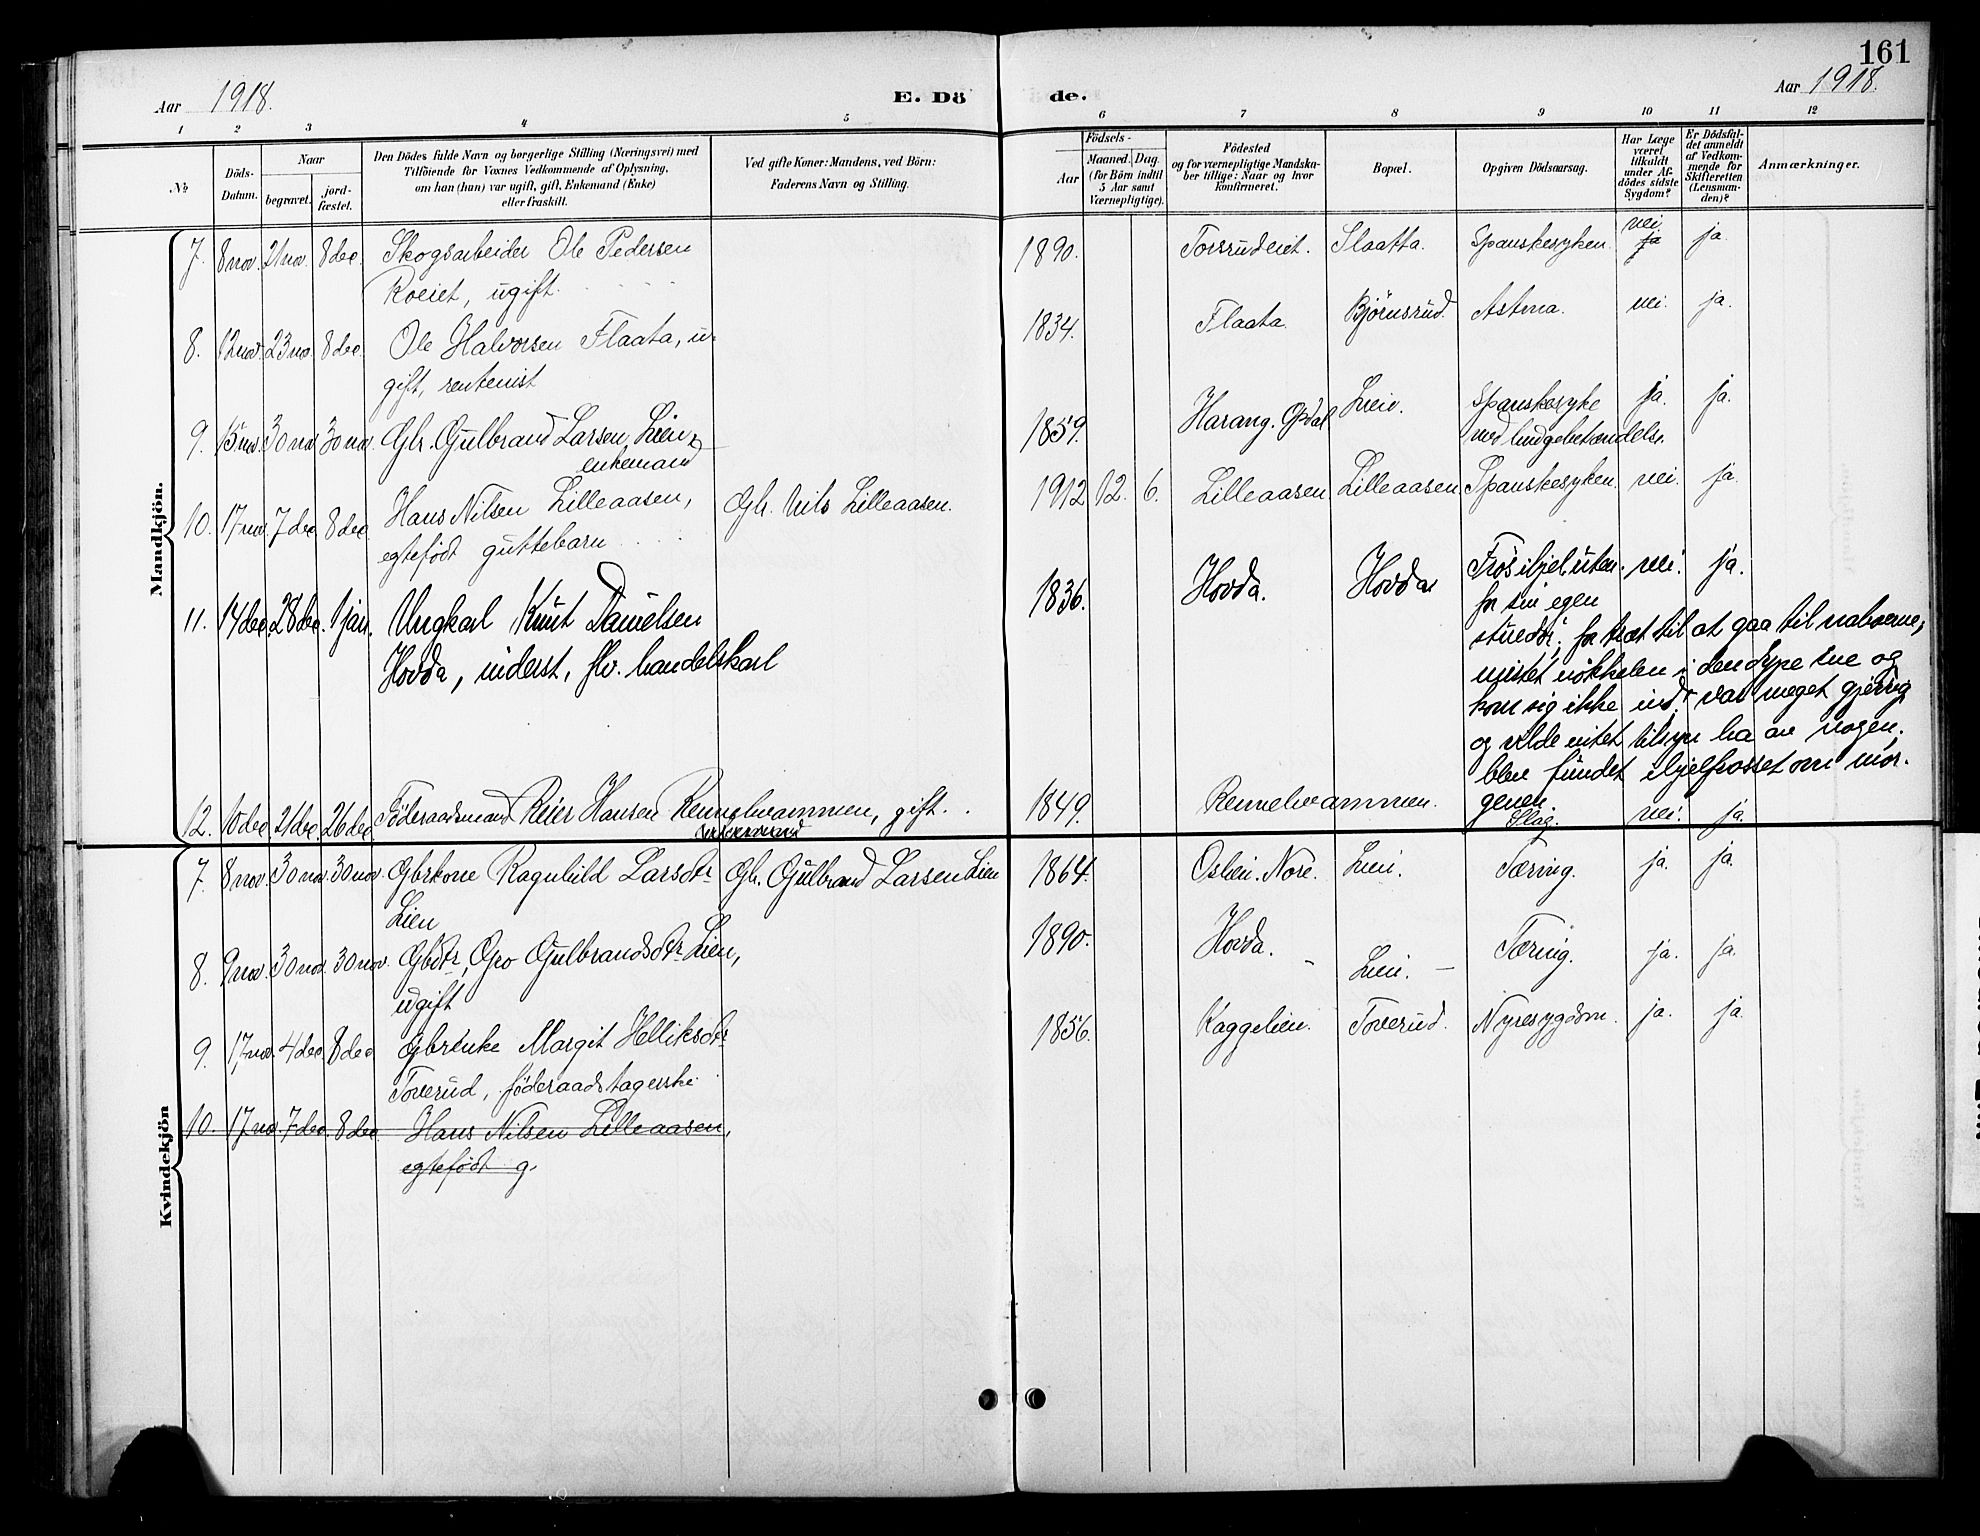 161
Aar 1918.
E. Dö
de.
Aar 1918.
1 2 3 4 5 6 7 8 9 10 11 12
№
Döds-
Datum.
Naar
begravet.
jord-
fæstet.
Den Dödes fulde Navn og borgerlige Stilling (Næringsvei) med
Tilföiende for Voxnes Vedkommende af Oplysning,
om han (hun) var ugift, gift, Enkemand (Enke)
eller fraskilt.
Ved gifte Koner: Mandens, ved Börn:
Faderens Navn og Stilling.
Födsels-
Aar
Maaned. Dag.
(for Börn indtil
5 Aar samt
Værnepligtige).
Födested
og for værnepligtige Mandska-
ber tillige: Naar og hvor
konfirmeret.
Bopæl.
Opgiven Dödsaarsag.
Har Læge
været
tilkaldt
under Af-
dödes sidste
Sygdom?
Er Dödsfal-
det anmeldt
af Vedkom-
mende for
Skifteretten
(Lensman-
den)?
Anmærkninger.
Mandkjön.
7. 8 nov. 21 nov. 8 dec. Skogsarbeider Ole Pedersen
Roeiet, ugift.
1890. Torsrudeiet. Slaatta. Spanskesyken. nei. ja ja
8. 12 nov. 23 nov. 8 dec. Ole Halvorsen Flaata, u-
gift, rentenist
1834. Flaata. Björnsrud. Astma. nei. ja.
9. 15 nov. 30 nov 30 nov. Gbr. Gulbrand Larsen Lien,
enkemand
1859. Harang. Opdal Lien. Spanskesyke
med lungebetændelse. ja. ja.
10. 17 nov. 7 dec 8 dec Hans Nilsen Lilleaasen,
egtefödt guttebarn
Gbr. Nils Lilleaasen.
1912 12. 6. Lilleaasen Lilleaasen. Spanskesyken. nei. ja.
11. 14 dec. 28 dec. 1 jan. Ungkarl Knut Danielsen
Hovda, inderst, fhv. handelskarl
1836. Hovda. Hovda Frös ihjel uten- nei. ja.
for sin egen
stuedör; for træt til at gaa til naboerne,
mistet nökkelen i den dype sne og
kom sig ikke ind. var meget gjerrig
og vilde intet tilsyn ha av nogen.
blev fundet ihjelfrosset om mor-
genen.
12. 10 dec. 21 dec. 26 dec. Föderaadsmand Reier Hansen Rennehvammen, gift.
1849. Rennehvammen. Slag. nei. ja.
Kvindekjön
7. 8 nov. 30 nov. 30 nov. Gbrkone Ragnhild Larsdtr
Lien
Gbr. Gulbrand Larsen Lien
1864. Oslien. Nore. Lien. Tæring. ja. ja.
8. 9 nov. 30 nov. 30 nov. Gbdtr, Gro Gulbrandsdtr Lien,
ugift
1890. Hovda. – Lien. – Tæring. ja. ja.
9. 17 nov. 4 dec 8 dec Gbrenke Margit Helliksdtr
Toverud, föderaadstagerske.
1856. Kaggelien. Toverud. Nyresygdom. ja. ja.
10. 17 nov. 7 dec. 8 dec. Hans Nilsen Lilleaasen,
egtefödt g.